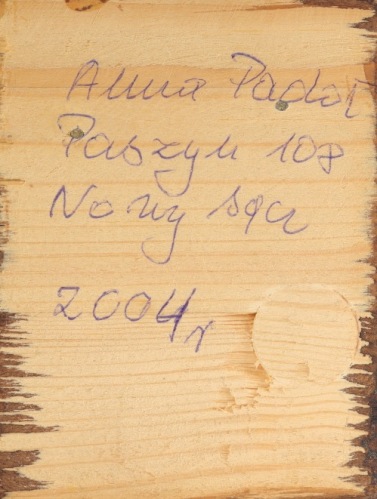 Anna Padoł
Paszyn 108
Nowy Sącz
2004 r